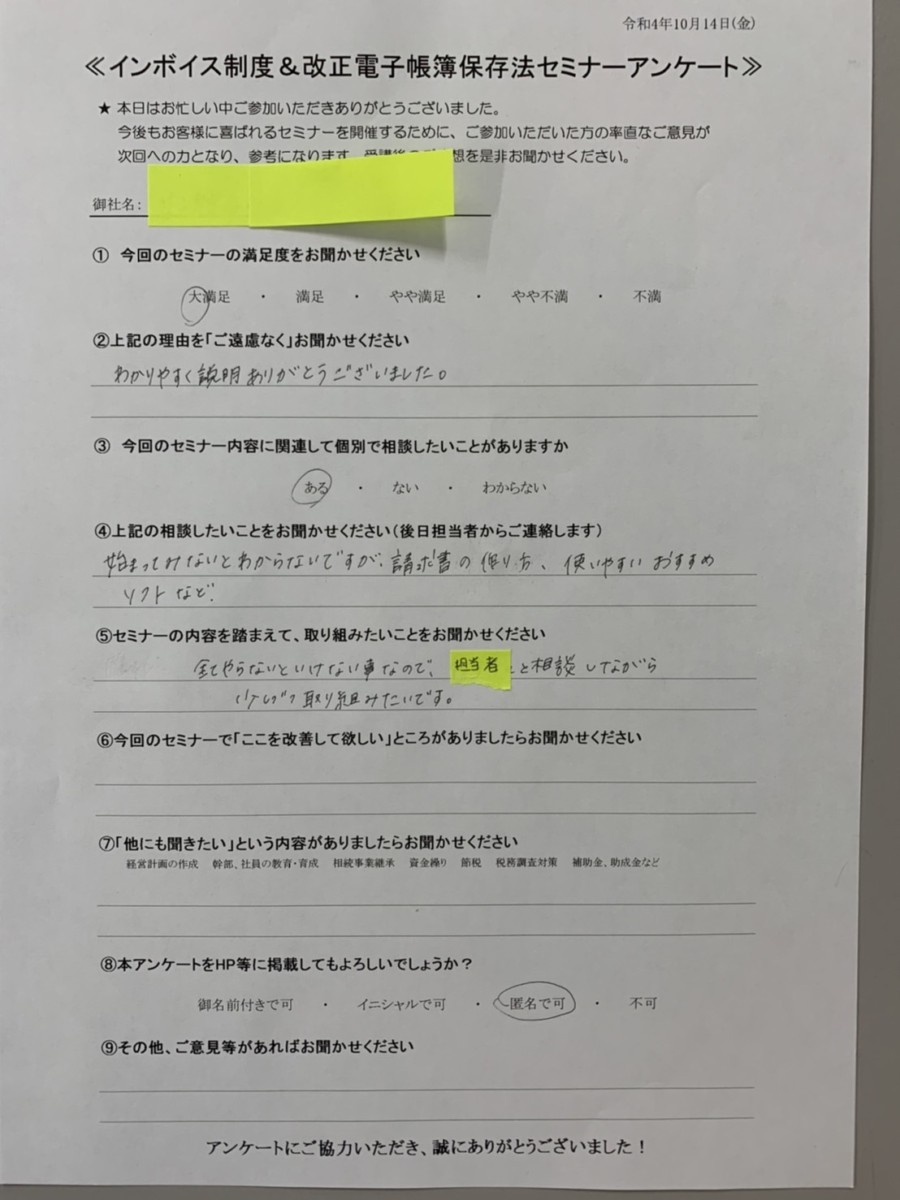 令和4年10月14日(金)
≪インボイス制度＆改正電子帳簿保存法セミナーアンケート≫
★ 本日はお忙しい中ご参加いただきありがとうございました。
今後もお客様に喜ばれるセミナーを開催するために、ご参加いただいた方の率直なご意見が
次回への力となり、参考になります。受講後のご感想を是非お聞かせください。
御社名：
① 今回のセミナーの満足度をお聞かせください
大満足 ・ 満足 ・ やや満足 ・ やや不満 ・ 不満
②上記の理由を「ご遠慮なく」お聞かせください
わかりやすく説明ありがとうございました。
③ 今回のセミナー内容に関連して個別で相談したいことがありますか
ある ・ ない ・ わからない
④上記の相談したいことをお聞かせください（後日担当者からご連絡します）
始まってみないとわからないですが、請求書の作り方、使いやすいおすすめ
ソフトなど。
⑤セミナーの内容を踏まえて、取り組みたいことをお聞かせください
全てやらないといけない事なので、担当者と相談しながら
少しずつ取り組みたいです。
⑥今回のセミナーで「ここを改善して欲しい」ところがありましたらお聞かせください
⑦「他にも聞きたい」という内容がありましたらお聞かせください
経営計画の作成 幹部、社員の教育・育成 相続事業継承 資金繰り 節税 税務調査対策 補助金、助成金など
⑧本アンケートをHP等に掲載してもよろしいでしょうか？
御名前付きで可 ・ イニシャルで可 ・ 匿名で可 ・ 不可
⑨その他、ご意見等があればお聞かせください
アンケートにご協力いただき、誠にありがとうございました！